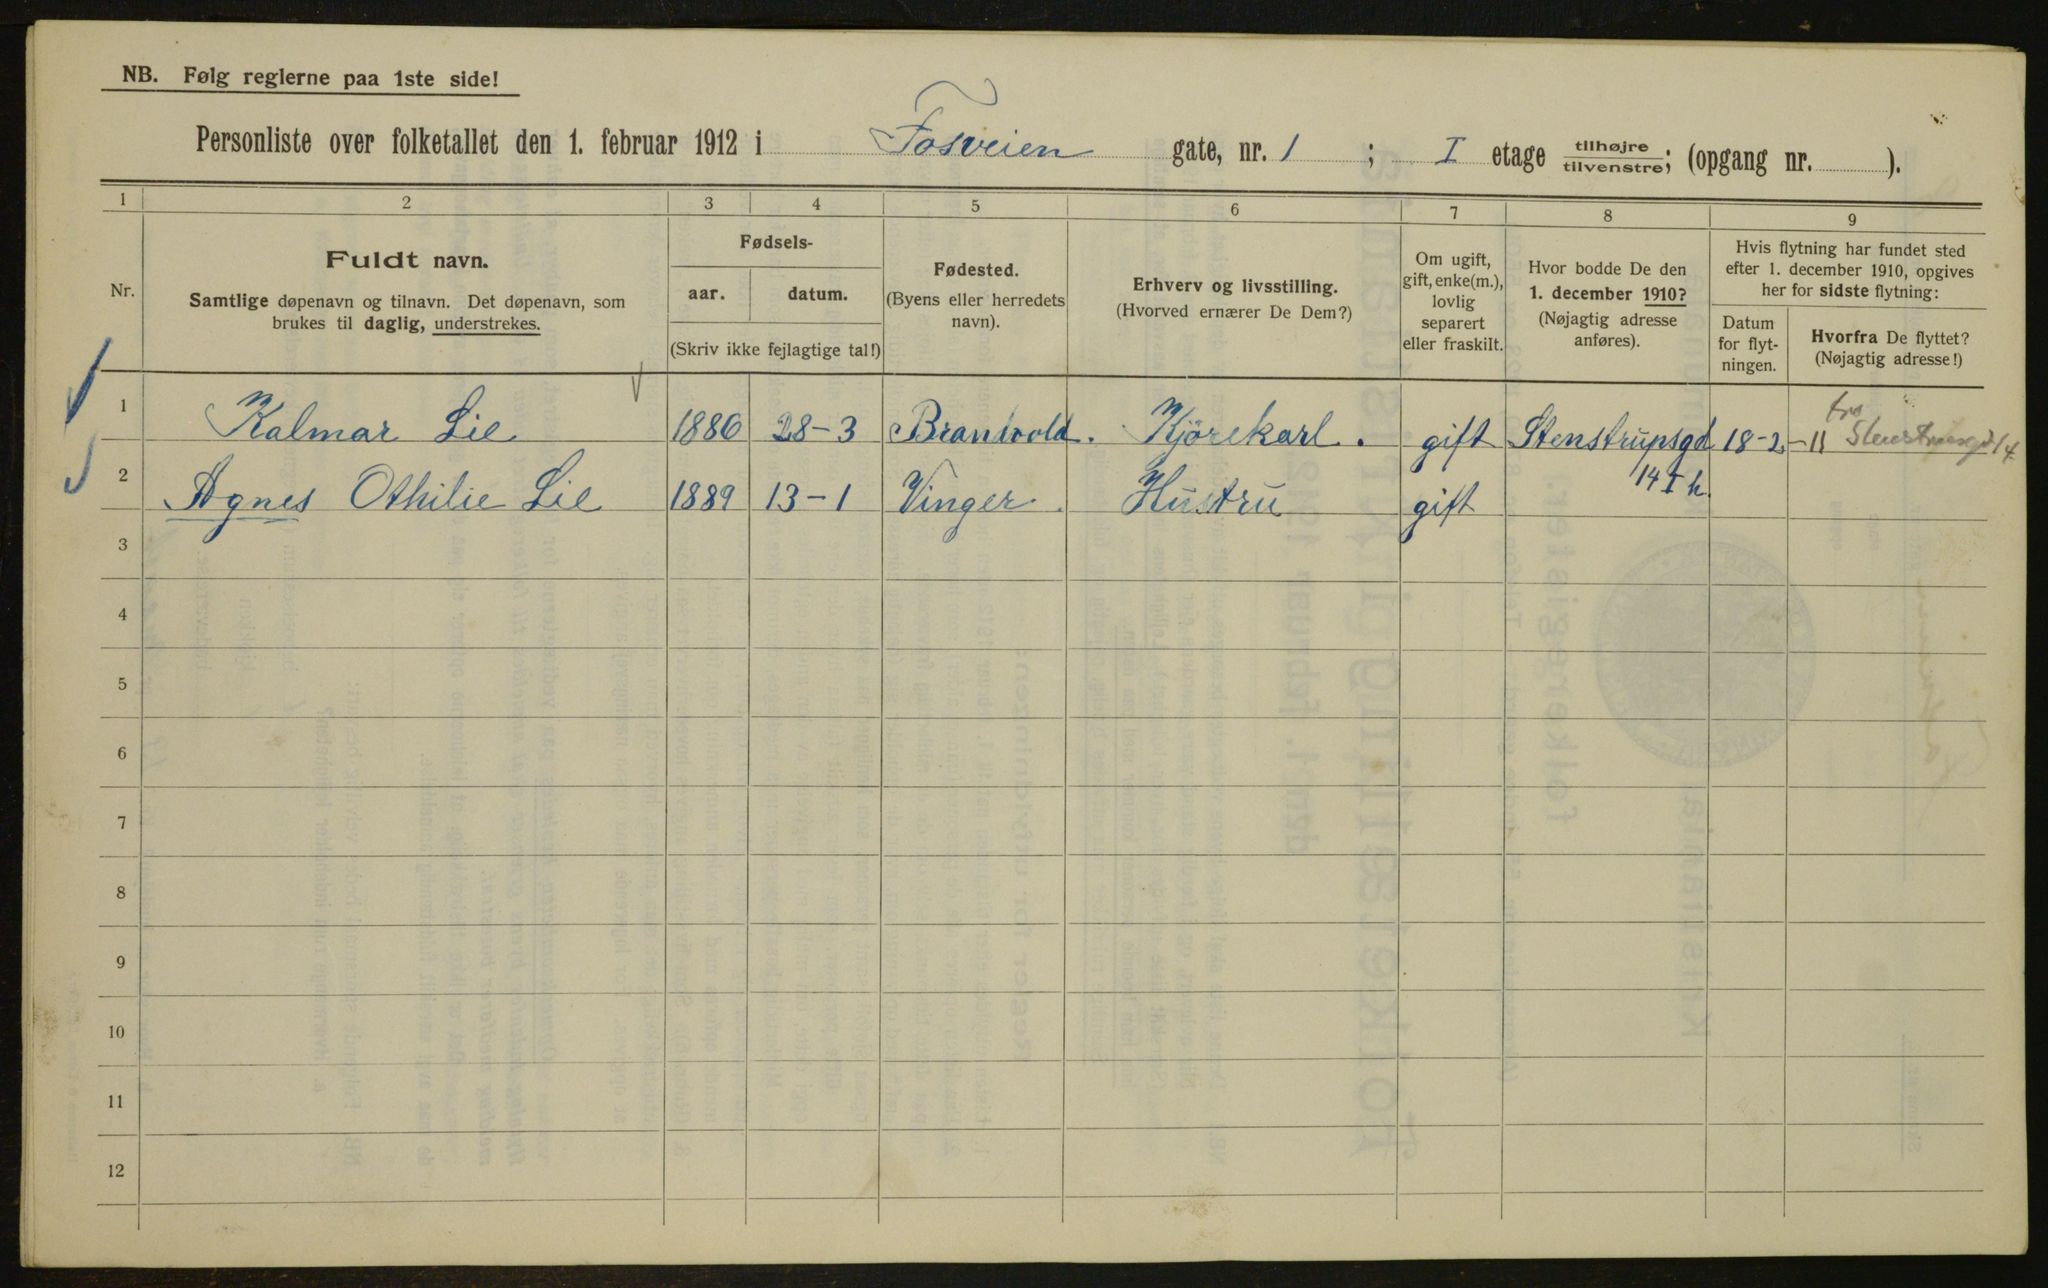 NB. Følg reglerne paa 1ste side!
Personliste over folketallet den 1. februar 1912 i Fosveien gate, nr. 1 ; I etage tilhøjre tilvenstre; (opgang nr. ).
1 2 3 4 5 6 7 8 9
Nr.
Fuldt navn.
Samtlige døpenavn og tilnavn. Det døpenavn, som
brukes til daglig, understrekes.
Fødsels-
aar. datum.
(Skriv ikke fejlagtige tal!)
Fødested.
(Byens eller herredets
navn).
Erhverv og livsstilling.
(Hvorved ernærer De Dem?)
Om ugift,
gift, enke(m.),
lovlig
separert
eller fraskilt.
Hvor bodde De den
1. december 1910?
(Nøjagtig adresse
anføres).
Hvis flytning har fundet sted
efter 1. december 1910, opgives
her for sidste flytning:
Datum
for flyt-
ningen.
Hvorfra De flyttet?
(Nøjagtig adresse!)
1 Kalmar Lie 1886 28-3 Brandvold. Kjörekarl. gift Stenstrupsgd 18-2-11 fra Stenstrupsgd 14
14 I h.
2 Agnes Othilie Lie 1889 13-1 Vinger. Hustru gift
3
4
5
6
7
8
9
10
11
12